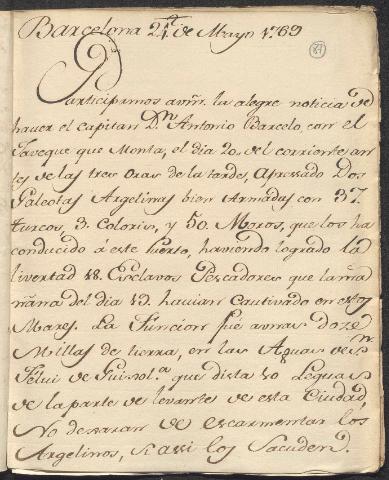 Barcelona 24 de Mayo 1769
87
Participamos a vm. la alegre noticia de
haver el capitan Dn. Antonio Barcelo, con el
Javeque que Monta, el dia 20 del corriente an
tes de las tres oras de la tarde, apressado Dos
Galeotas Argelinas bien Armadas con 37.
turcos, 3. Coloris, y 50. Moros, que los ha
conducido á este Puerto, haviendo logrado la
livertad 18. Esclavos Pescadores que la ma
ñana del dia 19. havian cautivado en estos
Mares. La Funcion fue a unas doze
Millas de tierra, en las Aguas de Sn.
Féliu de Guixols. que dista 10 leguas
de la parte de levante de esta Ciudad,
No dexaran de escarmentar los
Argelinos, si assi los Sacuden.